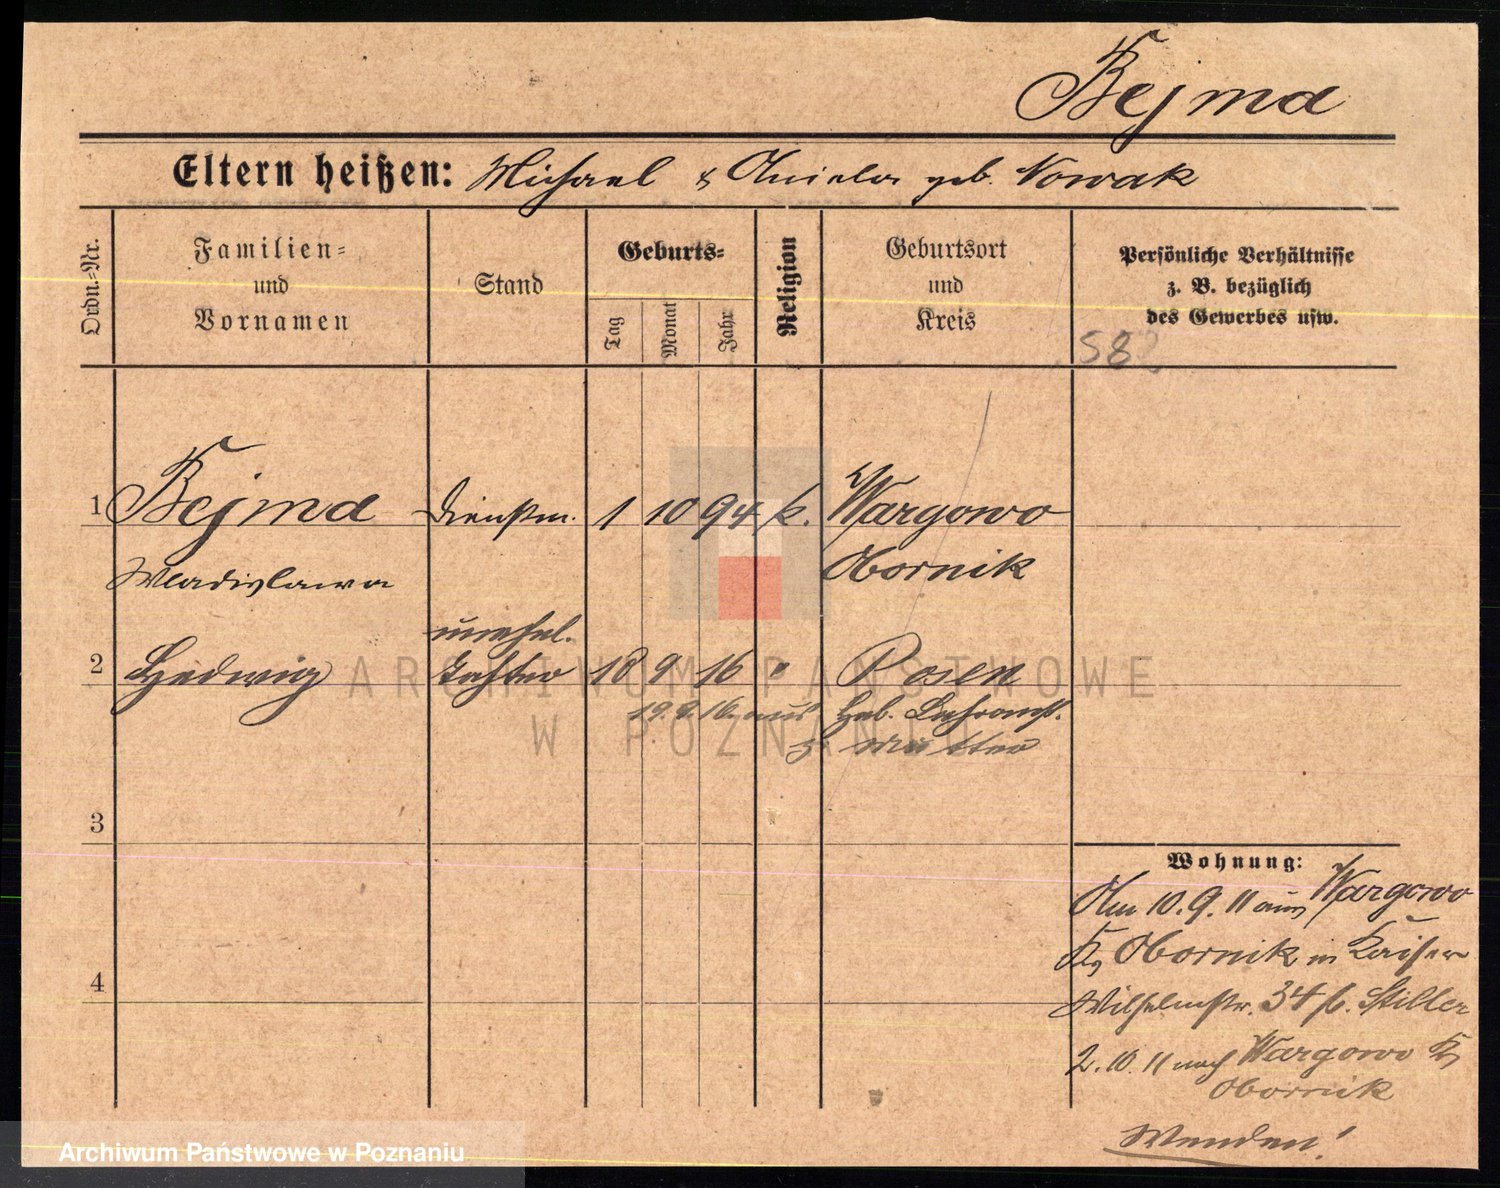 Bejma
Eltern heißen: Michael & Aniela geb. Nowak
Ordn.-Nr.
Familien-
und
Vornamen
Stand
Geburts-
Tag
Monat
Jahr
Religion
Geburtsort
und
Kreis
Persönliche Verhältnisse
z. B. bezüglich
des Gewerbes usw.
58
1 Bejma Dienstm. 1 10 94 k. Wargowo
Wladislawa Obornik
unehel.
2 Hedwig Tochter 18 9 16 " Posen
19. 9. 16 aus Heb. Lehranst.
z Mutter
3
4
Wohnung:
Am 10. 9. 11 aus Wargowo
Krs Obornik in Kaiser
Wilhelmstr. 34 b. Stiller
2. 10. 11 nach Wargowo Kr
Obornik
Wenden!
ARCHIWUM PAŃSTWOWE
W POZNANIU
Archiwum Państwowe w Poznaniu